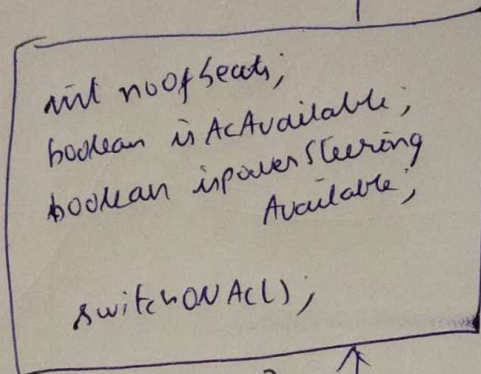 int noofSeats;
boolean isAcAvailable;
boolean ispowerSteering
Available;
switchONAC();